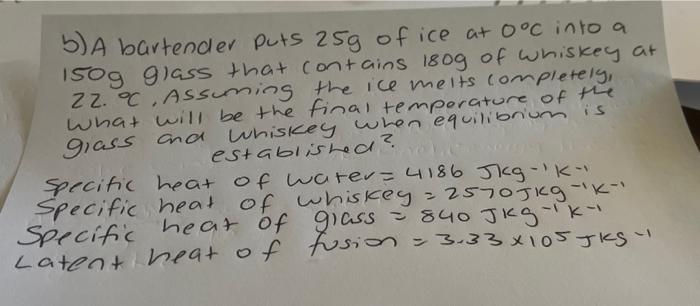 b) A bartender puts 25g of ice at 0°C into a
150g glass that contains 180g of whiskey at
22.°C. Assuming the ice melts completely,
what will be the final temperature of the
glass and whiskey when equilibrium is
established?
Specific heat of water = 4186 Jkg⁻¹K⁻¹
Specific heat of whiskey = 2570 Jkg⁻¹K⁻¹
Specific heat of glass = 840 Jkg⁻¹K⁻¹
Latent heat of fusion = 3.33 x105 JKg⁻¹